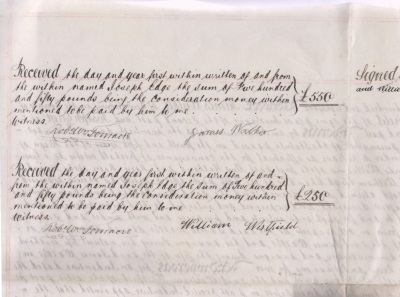 Received the day and year first within written of and from
the within named Joseph Edge the Sum of Five hundred
and fifty pounds being the consideration money within
mentioned to be paid by him to me.
£550
Witness
James
Received the day and year first within written of and
from the within named Joseph Edge the Sum of Two hundred
and fifty pounds being the consideration money within
mentioned to be paid by him to me
£250
witness
William Westfield
Signed
and Willia